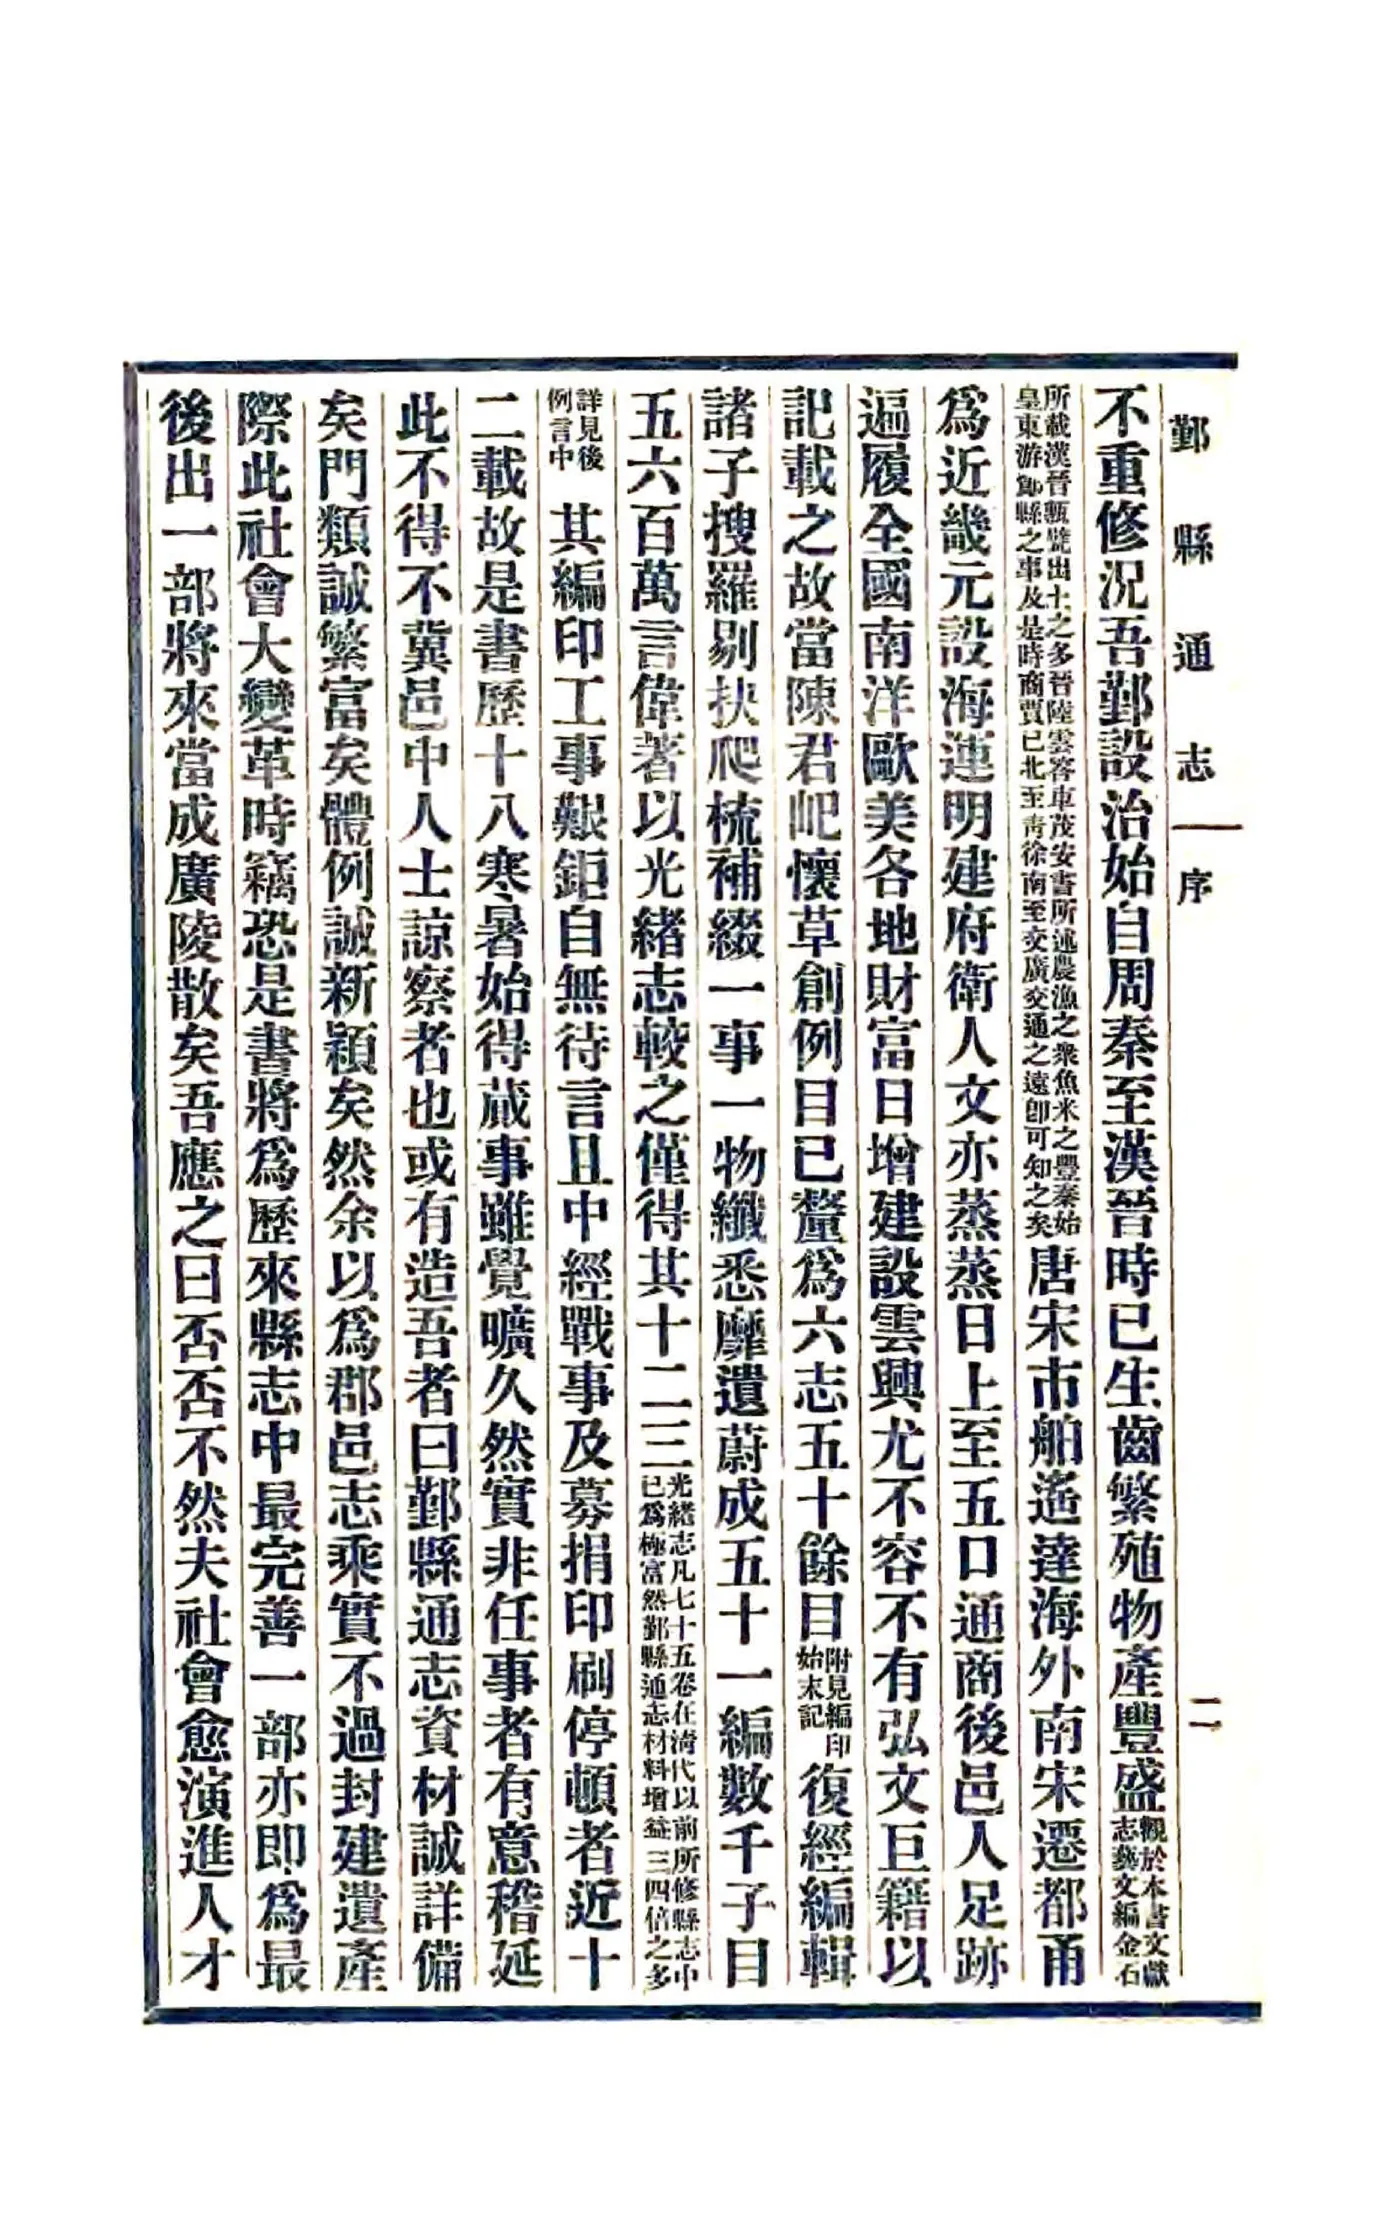 鄞縣通志 序 二
不重修況吾鄞設治始自周秦至漢晉時已生齒繁殖物產豐盛觀於本書文獻志藝文編金石
所載漢晉甎甓出土之多晉陸雲答車茂安書所述農漁之衆魚米之豐秦始皇東游鄮縣之事及是時商賈已北至靑徐南至交廣交通之遠卽可知之矣唐宋市舶遙達海外南宋遷都甬
爲近畿元設海運明建府衛人文亦蒸蒸日上至五口通商後邑人足跡
遍履全國南洋歐美各地財富日增建設雲興尤不容不有弘文巨籍以
記載之故當陳君屺懷草創例目已釐爲六志五十餘目附見編印始末記復經編輯
諸子搜羅剔抉爬梳補綴一事一物纖悉靡遺蔚成五十一編數千子目
五六百萬言偉著以光緒志較之僅得其十二三光緒志凡七十五卷在淸代以前所修縣志中已爲極富然鄞縣通志材料增益三四倍之多
詳見後例言中其編印工事艱鉅自無待言且中經戰事及募捐印刷停頓者近十
二載故是書歷十八寒暑始得蕆事雖覺曠久然實非任事者有意稽延
此不得不冀邑中人士諒察者也或有造吾者曰鄞縣通志資材誠詳備
矣門類誠繁富矣體例誠新穎矣然余以爲郡邑志乘實不過封建遺產
際此社會大變革時竊恐是書將爲歷來縣志中最完善一部亦即爲最
後出一部將來當成廣陵散矣吾應之曰否否不然夫社會愈演進人才